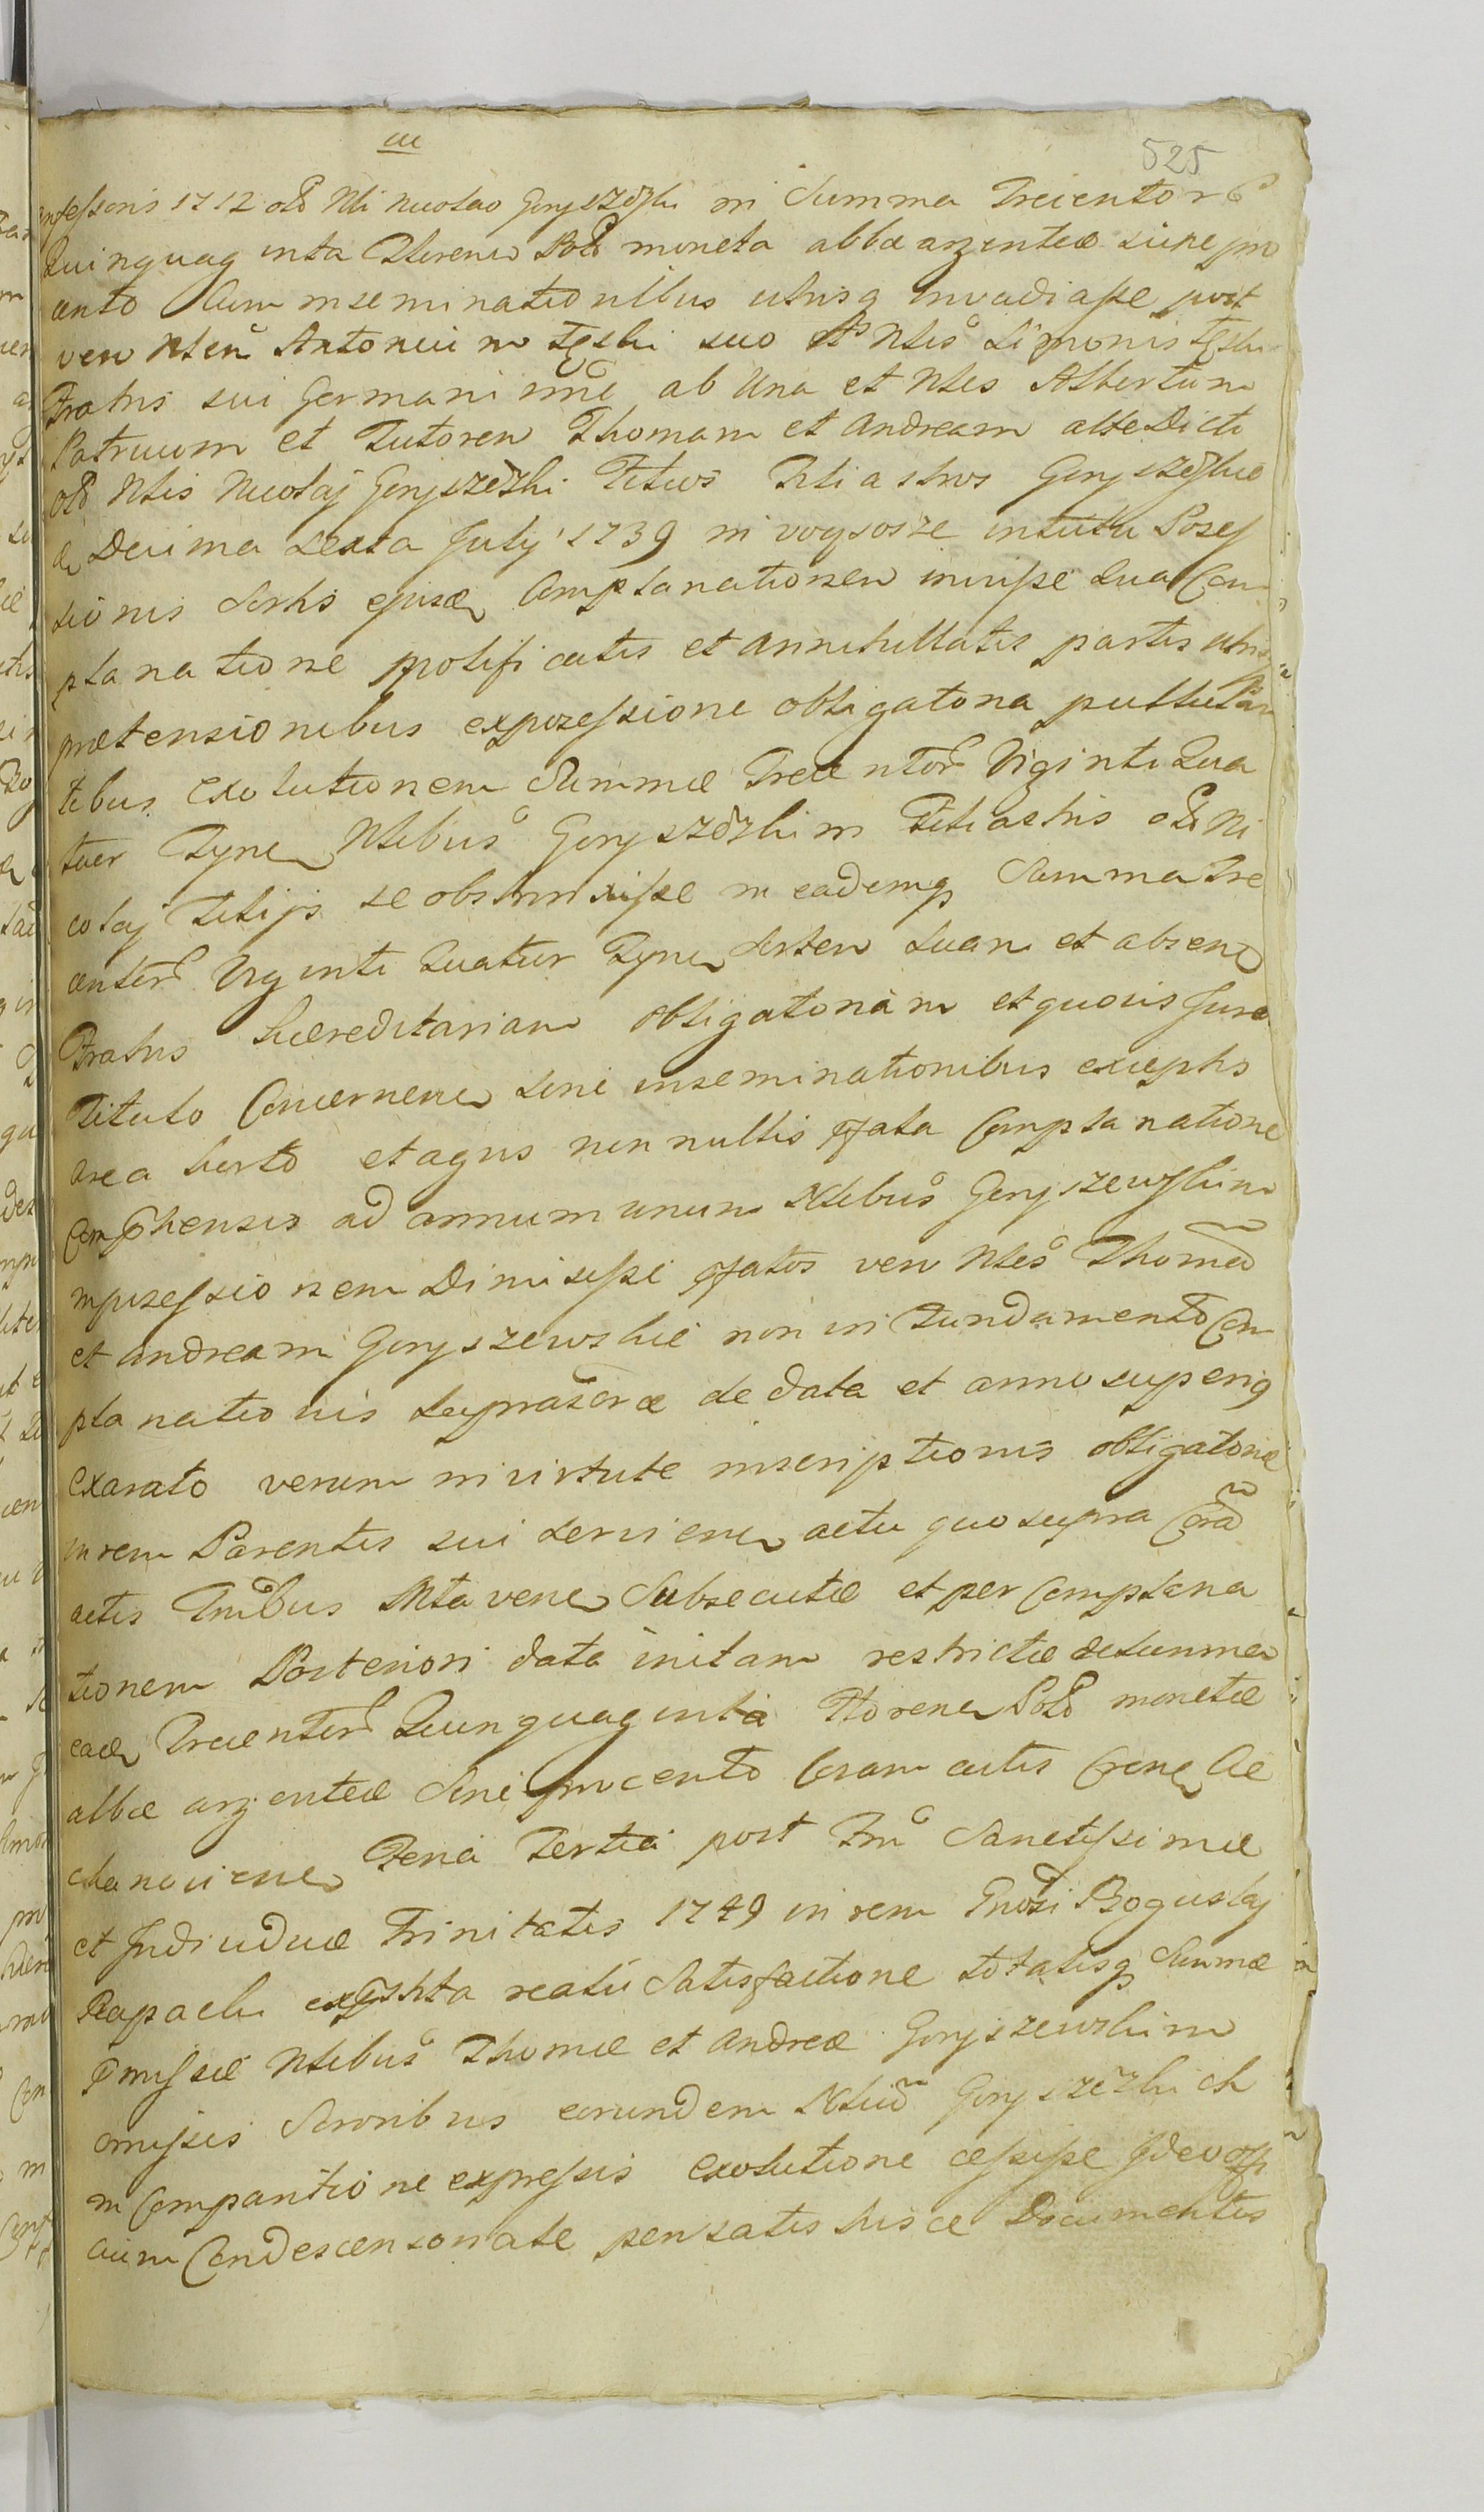 525
fessoris 1712 olo Nli Nicolao Goryszewski in Summa Trecentor
Quinquaginta Floreno Pol moneta albae argenteae sine pro
cento cum inseminationibus utrisq invadiasse post
vero Nlem Antonium Teski suo et Nlis Simonis Teski
Fratris sui Germani nne ab una et Nles Albertum
Patruum et Tutorem Thomam et Andream alte Dicti
olo Nlis Nicolaj Goryszewski Filios Filiastros Goryszewskie
de Decima Sexta July 1739 in intuitu Posses
sionis Sortis ejusd Complanationem inivisse qua Com
planatione mortificatis et annihillatis partis utriq
praetensionibus expossessione obligatoria pullulan
tibus exolutionem Summae Trecentor Viginti Qua
tuor Tynf Nlibus Goryszewskim Filiastris olo Ni
colaj Filijs se obstrinxisse in eademq Summa Tre
centor Viginti Quatuor Tynf Sortem Suam et absen
Fratris haereditariam obligatoriam et quovis Jure
Titulo Concernen sine inseminationibus exceptis
area horto et agris nonnullis pfata Complanatione
Comphensis ad annum unum Nlibus Goryszewskim
inpossessionem Dimisisse pfatos vero Nles Thomam
et Andream Goryszewskie non in Fundamento Com
planationis supra de data et anno superiq
exarato verum in virtute inscriptionis obligatoriae
in rem Parentis sui servien actu quo supra Coram
actis Subsecutae et per Complana
tionem Posteriori data initam restrictae de summa
ead Trecentor Quinquaginta Floren Pol monetae
albae argenteae sine procento Coram actis Cren Cie
chanovien Feria Tertia post Fm Sanctissimae
et Individuae Trinitatis 1749 in rem Gnosi Boguslaj
Rapacki reali Satisfactione totalisq Summae
pmissae Nlibus Thomae et Andreae Goryszewskim
omissis Sororibus eorundem Nlium Goryszewskich
in Comparitione expressis exolutione cessisse Ideo
cium Condescensoriale pensatis hisce Documentis